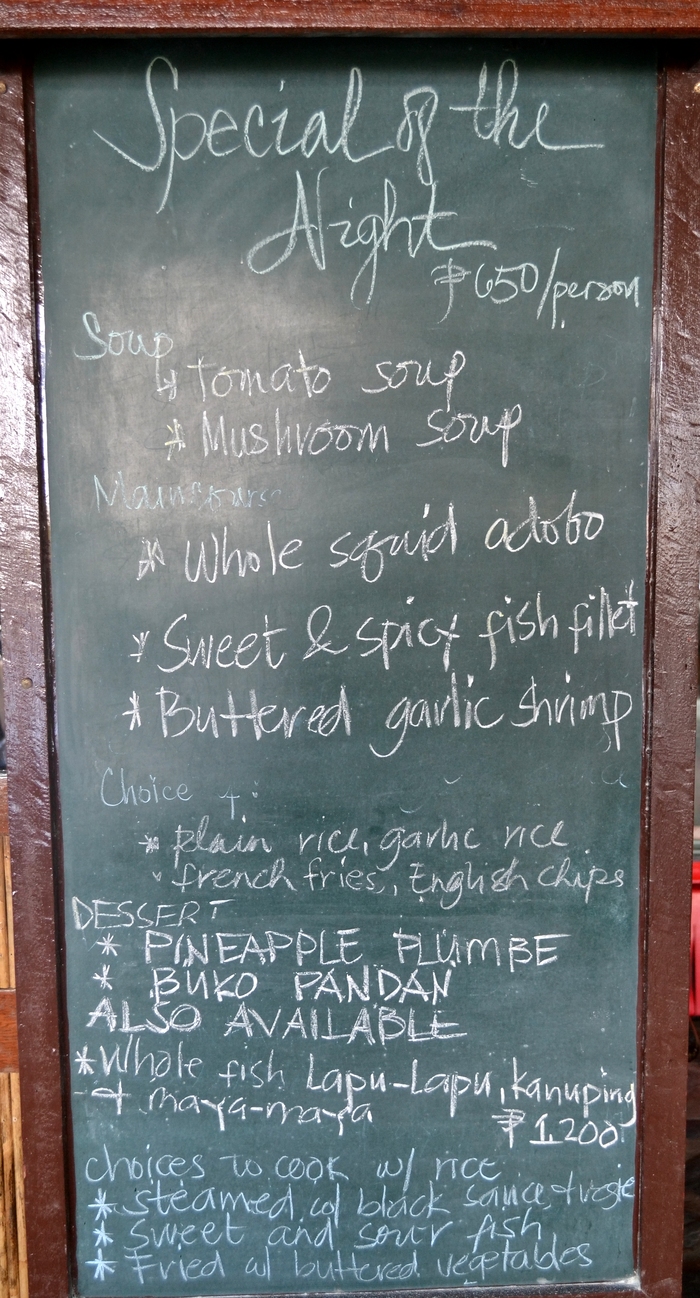 Special of the
Night
₱650/person
Soup
Tomato soup
* Mushroom soup
Maincourse
* Whole squid adobo
* Sweet & spicy fish fillet
* Buttered garlic shrimp
Choice of:
* plain rice, garlic rice
french fries, English chips
DESSERT
* PINEAPPLE FLUMBE
* BUKO PANDAN
ALSO AVAILABLE
*Whole fish Lapu-Lapu, kanuping
+ maya-maya
₱1,200
choices to cook w/ rice
* steamed w/ black sauce + vegie
* Sweet and sour fish
* Fried w/ buttered vegetables